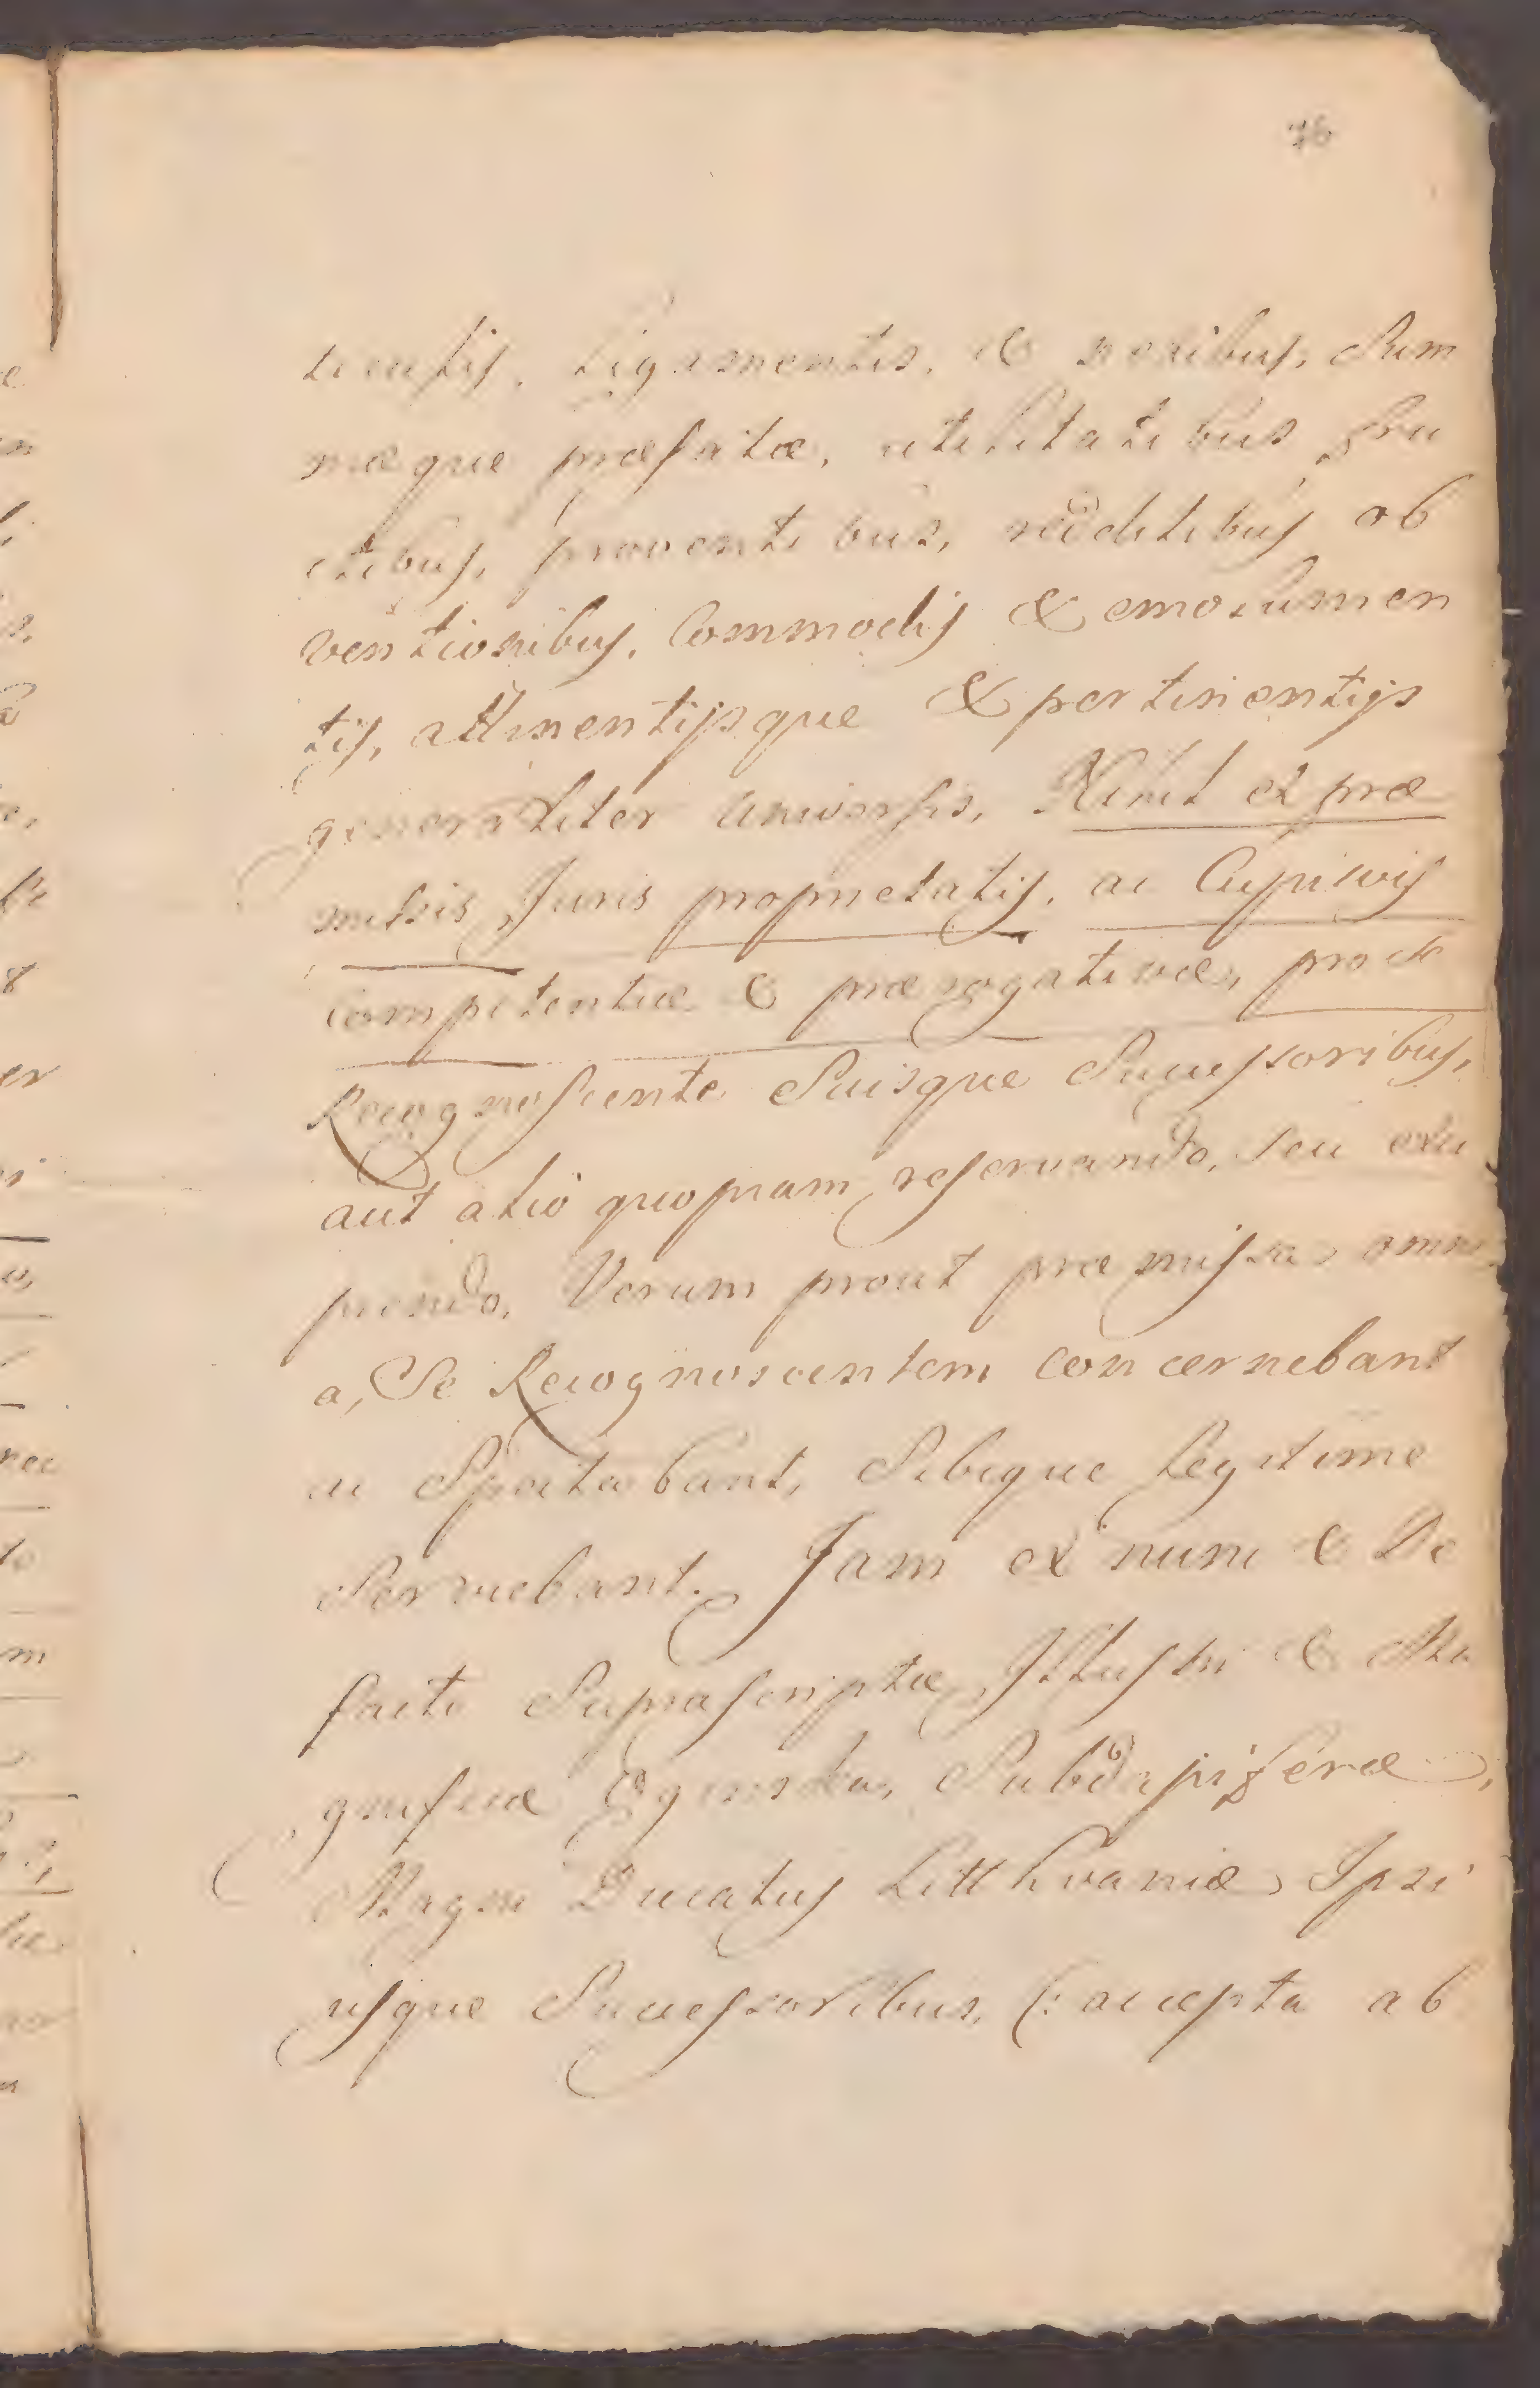 76
ticulis, Ligamentis, & nexibus, Sum
mæque præfatæ, utilitatibus fru
ctibus, proventibus, redditibus ob
ventionibus, Commodis & emolumen
tis, attinentijsque & pertinentijs
generaliter universis, Nihil ex præ
missis Juris proprietatis, ac Cujusvis
competentiæ & prærogativæ, pro se
Recognoscente Suisque Successoribus,
aut alio quopiam reservando, seu exci
piendo, Verum prout præmissa omni
a, Se Recognoscentem concernebant
ac Spectabant, Sibique Legitime
Serviebant. Jam ex nunc & De
facto Suprascriptæ Illustri & Ma
gnificæ Subdapiferæ,
Magni Ducatus Litthvaniæ, Ipsi
usque Successoribus, (: accepta ab